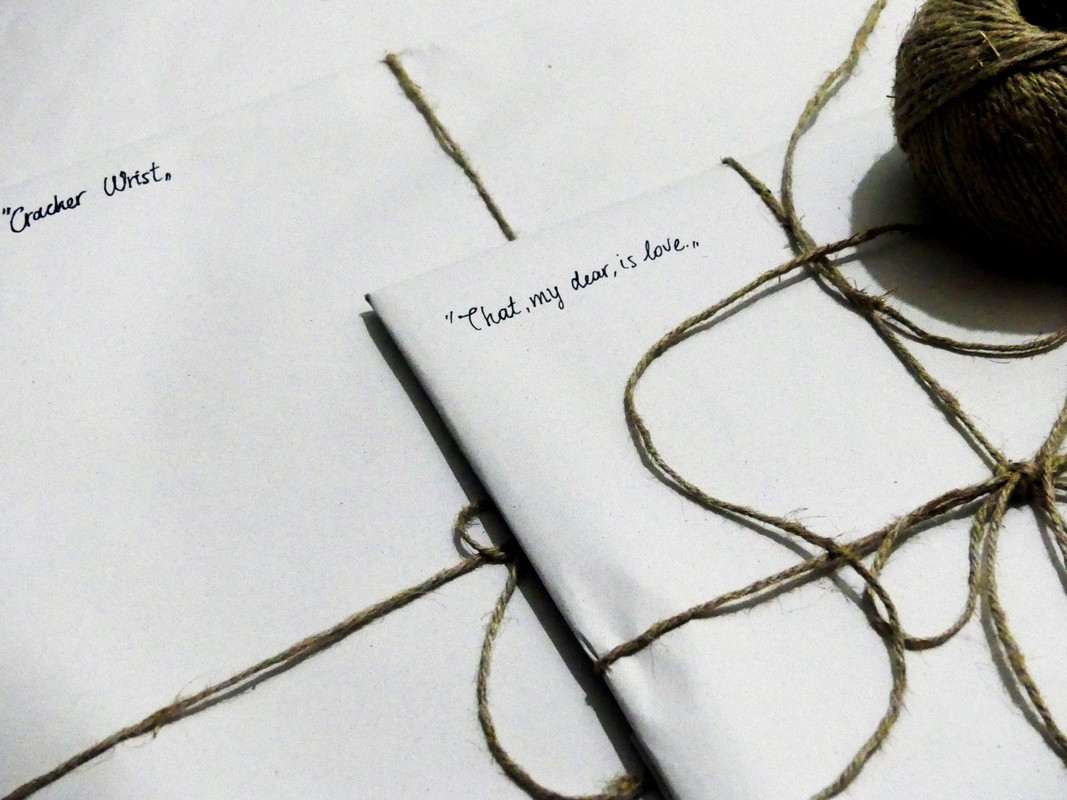 "Cracker Wrist„
"That, my dear, is love..„